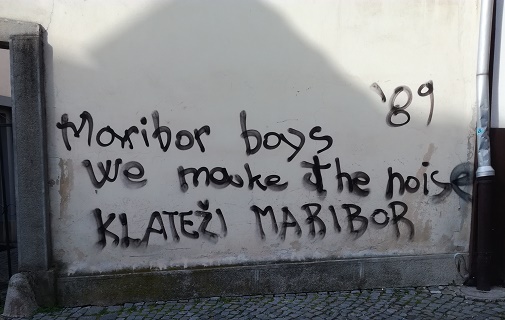 '89
Maribor boys
We make the noise
KLATEŽI MARIBOR